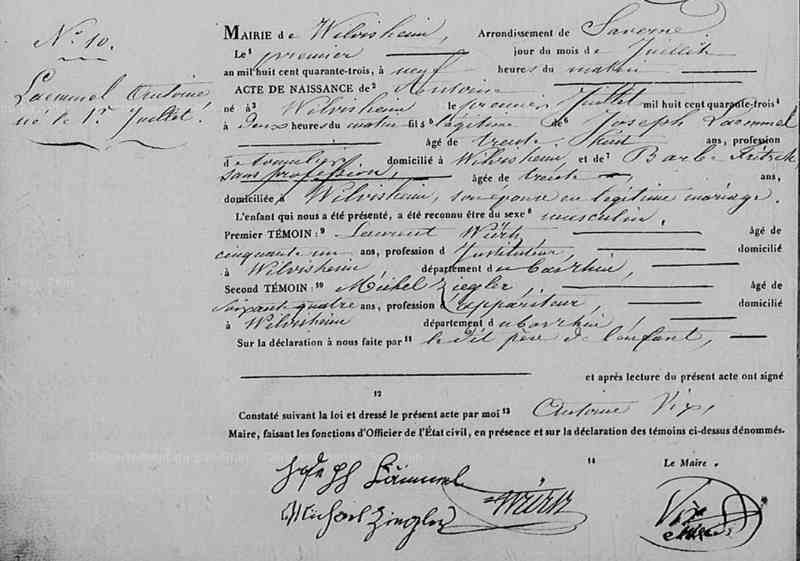 N° 10.
Laemmel Antoine
né le 1r Juillet.
MAIRIE de Wilvisheim, Arrondissement de Saverne
Le 1 premier jour du mois de Juillet
an mil huit cent quarante-trois, à neuf heures du matin
ACTE DE NAISSANCE de 2 Antoine
né à 3 Wilvisheim le premier Juillet mil huit cent quarante-trois 4
à deux heures du matin fils 5 légitime de 6 Joseph Laemmel
âgé de trente huit ans, profession
de domicilié à Wilvisheim, et de 7 Barbe Fritsch
sans profession, âgée de trente ans,
domiciliée à Wilvisheim, son épouse en légitime mariage.
L'enfant qui nous a été présenté, a été reconnu être du sexe 8 masculin.
Premier TÉMOIN: 9 Laurent Würtz âgé de
cinquante un ans, profession d'Instituteur, domicilié
à Wilvisheim département du Basrhin,
Second TÉMOIN: 10 Michel Ziegler, âgé de
soixante quatre ans, profession d'appariteur, domicilié
à Wilvisheim département du Basrhin,
Sur la déclaration à nous faite par 11 le dit père de l'enfant,
et après lecture du présent acte ont signé
12
Constaté suivant la loi et dressé le présent acte par moi 13 Antoine Vix,
Maire, faisant les fonctions d'Officier de l'État civil, en présence et sur la déclaration des témoins ci-dessus dénommés.
14 Le Maire.
Joseph Lämmel
Würtz
Michael Ziegler
Vix